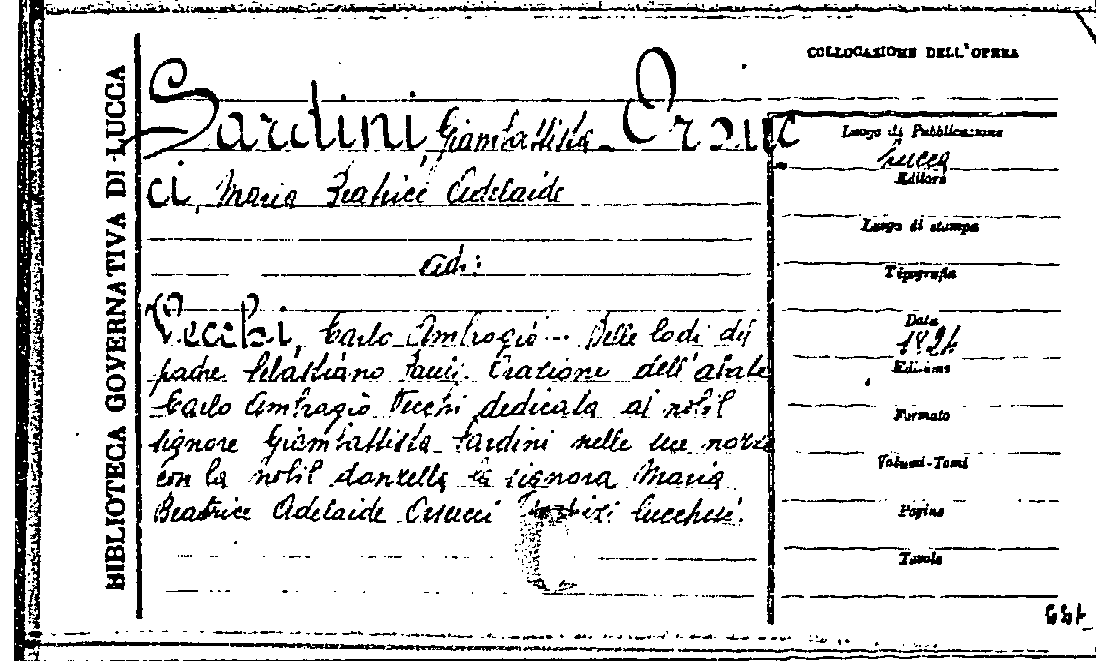 BIBLIOTECA GOVERNATIVA DI LUCCA
COLLOCAZIONE DELL'OPERA
Sardini, Giambattista - Orsuc
ci, Maria Beatrice Adelaide
ad:
Vecchi, Carlo Ambrogio... Delle lodi del
padre Sebastiano Orazione dell'abate
Carlo Ambrogio Vecchi dedicata al nobil
signore Giambattista Sardini nelle sue nozze
con la nobil donzella la signora Maria
Beatrice Adelaide Orsucci Lucchesi.
Luogo di Pubblicazione
Lucca
Editore
Luogo di stampa
Tipografia
Data
Edizione
Formato
Volumi-Tomi
Pagine
Tavole